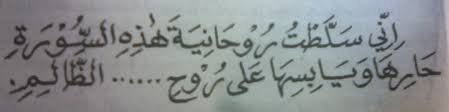 اِنِّي سَلَّطْتُ رُوْحَانِيَةَ هٰذِهِ السُّوْرَةِ
حَارِهَا وَيَابِسِهَا عَلٰى رُوْحِ ...... الظَّالِمِ.